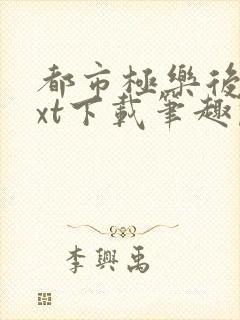 都市極樂後
xt下載筆趣
李興禹